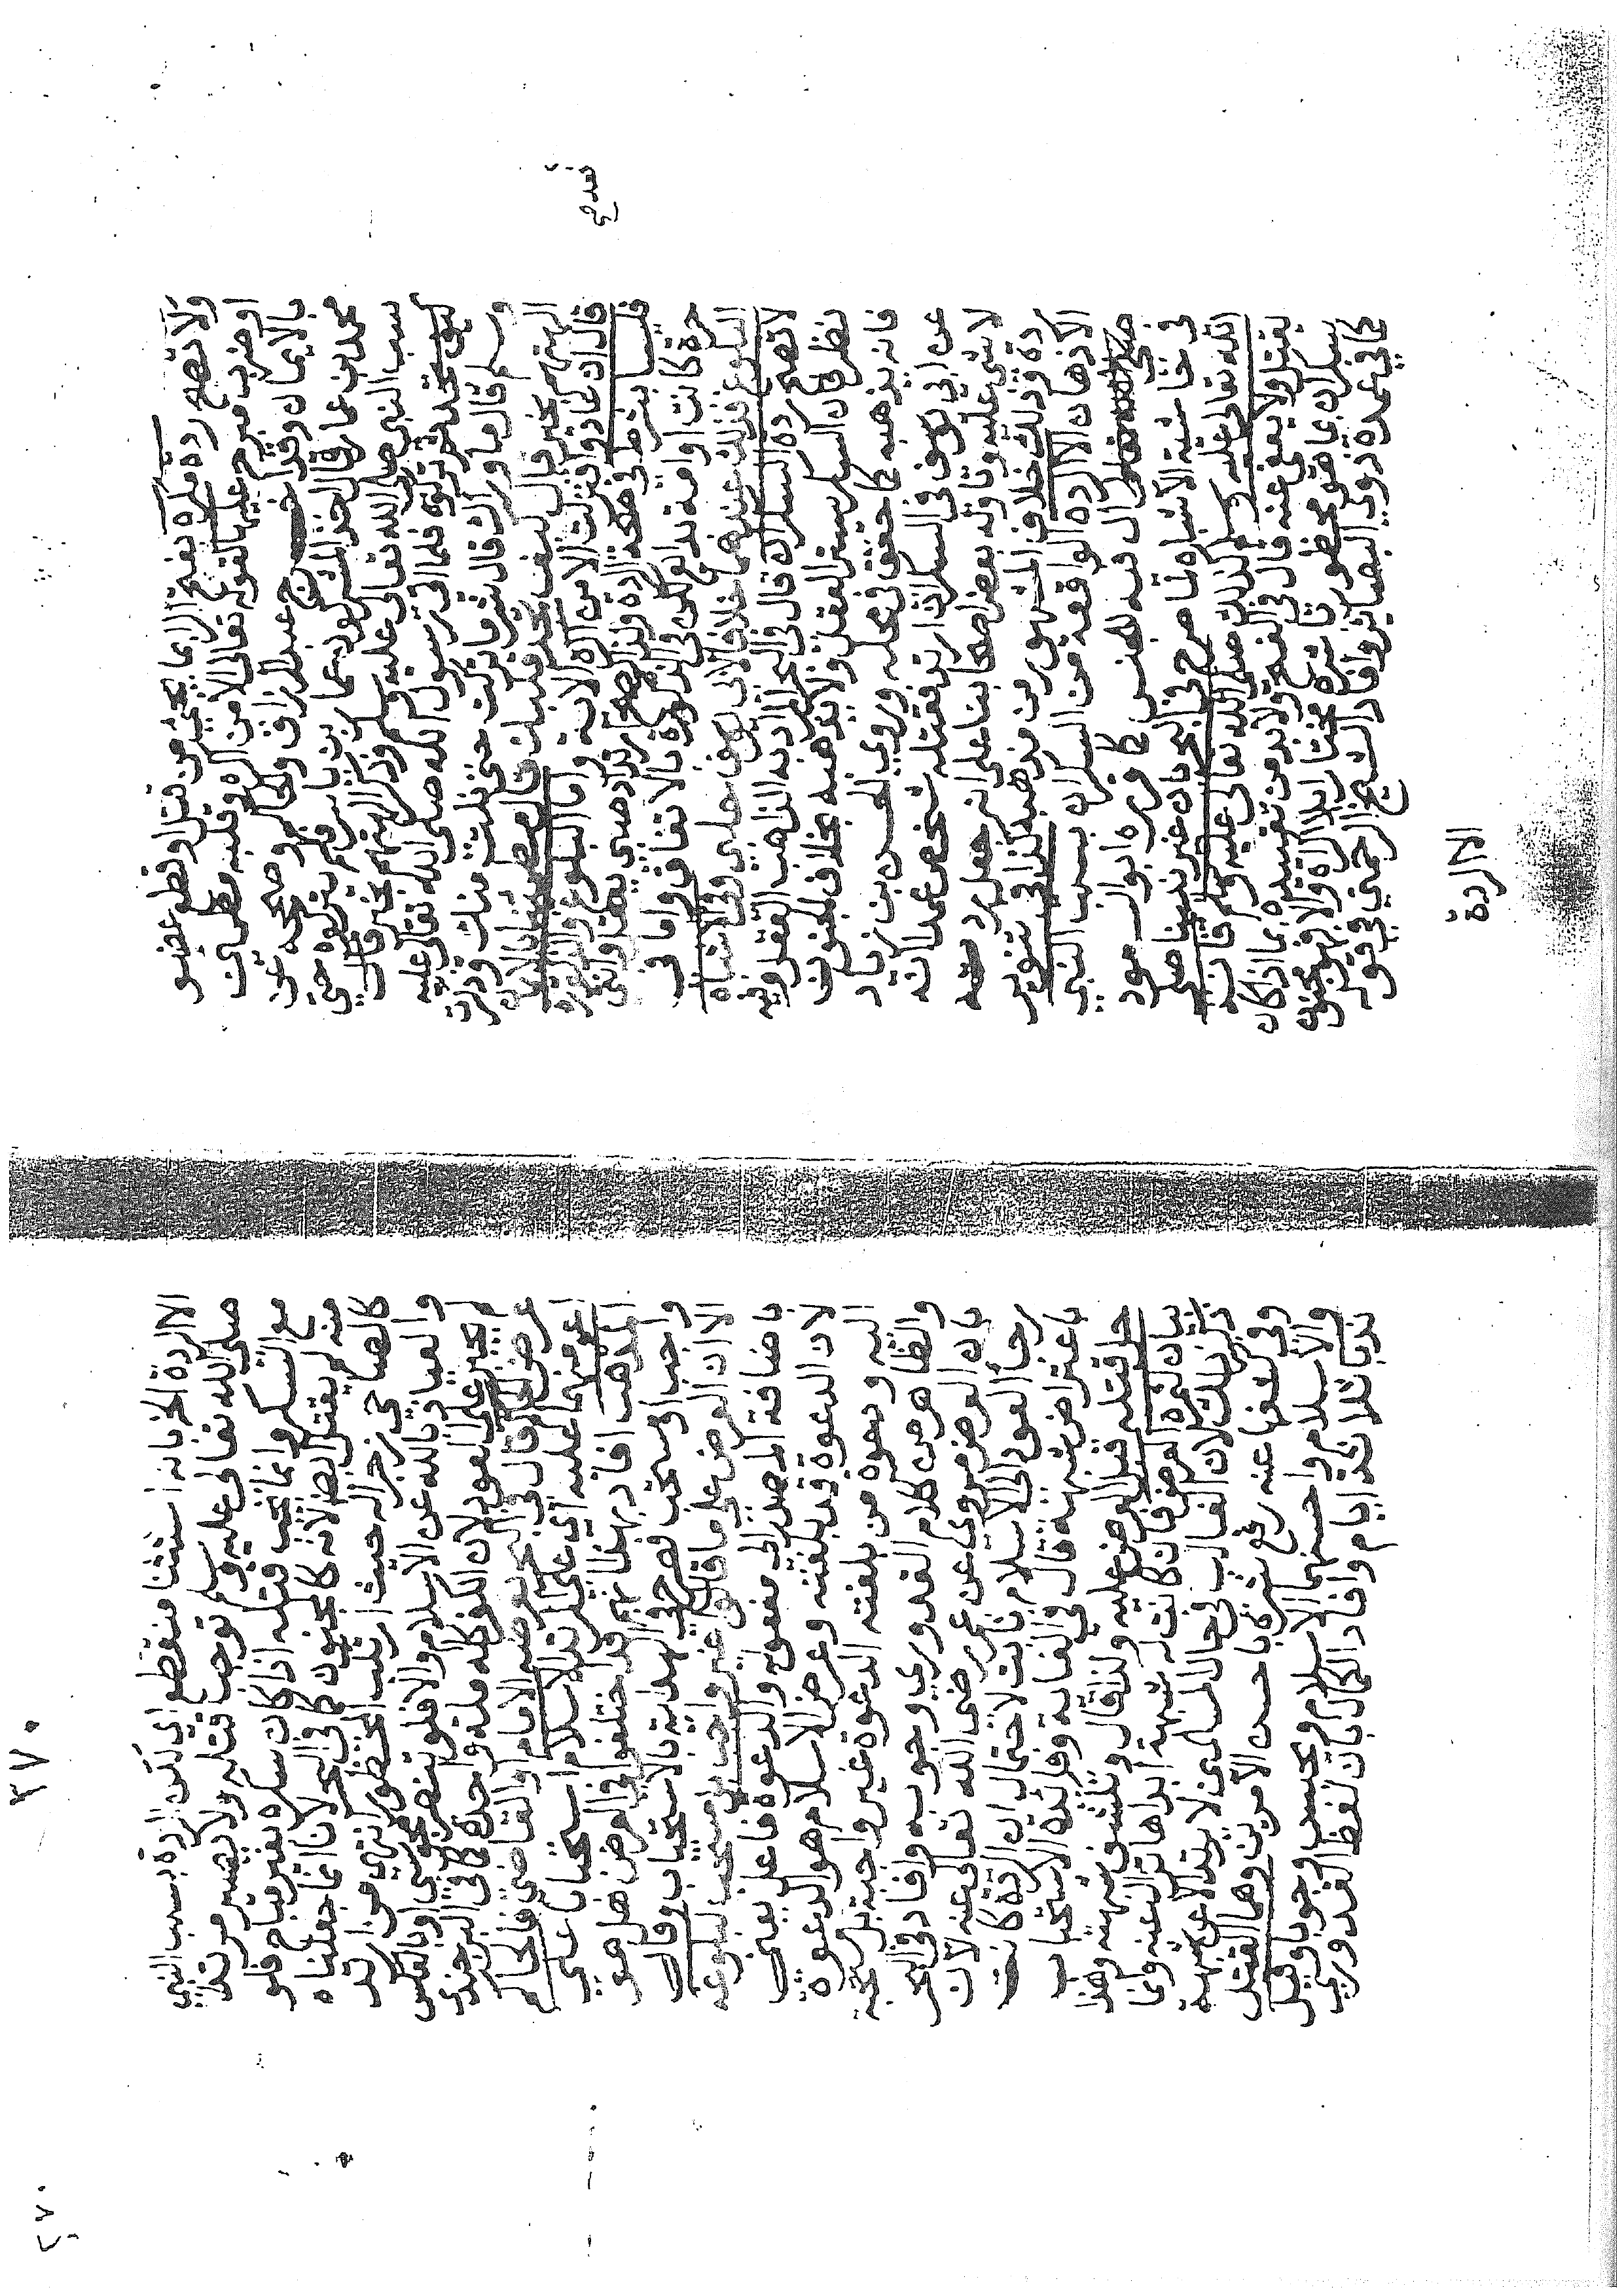 ولا تصح ردة مكره بفتح الراء بما يخشى من قتل او قطع عضو
او ضرب مبرح عليها لقوله تعالى الا من اكره وقلبه مطمئن
بالايمان وقد اخرج عبد الرزاق والحاكم وصححه عن
محمد بن عمار قال اخذ المشركون عمار بن ياسر فلم يتركوه حتى
سب النبي صلى الله تعالى عليه وسلم وذكر الهتهم بخير
ثم تركوه فلما اتى رسول الله صلى الله تعالى عليه
وسلم قال ما وراك قال شر ما تركت حتى نلت منك وذكرت
الهتهم بخير قال كيف تجد قلبك قال مطمئنا بالايمان
قال ان عادوا فعد فنزلت الا من اكره الاية واما البلوغ والذكورة
فليسا بشرط في صحة الردة ولذا صح ارتداد صبي يعقل وانثى
حرة كانت او امة بالاتفاق واما في
البلوغ فذلك عندهما خلافا لابي يوسف وفي الاشباه
لا تصح ردة السكران قال في البحر المراد به الذاهب العقل وفيه
نظر فان السكر يستر العقل ولا يذهبه بخلاف الجنون
فانه يذهبه كما حقق في محله وروي الحسن بن زياد
عن ابي يوسف في السكران اذا ارتد فقتله شخص عمدا انه
لا شئ عليه وتاوله بعض اصحابنا على انه جعل رده
ردة وذلك خلاف المشهور من مذهبه كذا في تنوير
الاذهان الا الردة الواقعة من السكران بسبب النبي
في حاشية الاشباه كما صرح في البحر بان غير نبينا صلى
الله تعالى عليه وسلم كذلك صلى الله تعالى عليه وسلم فانه
يقتل ولا يعفى عنه قال في الفتح ولا بد من تقييده بما اذا كان
سكران بما هو محظور باشره مختارا بلا اكراه والا فهو كمجنون
كما في عمدة ذوي البصائر وافاد الشيخ الرحمتي في قوله
الا الردة
٣٧٠
الا الردة الخ بانه استثنا منقطع اي لكن الردة بسبب النبي
صلى الله تعالى عليه وسلم توجب قتله ولا يصير مرتدا
مع السكر وانما يجب قتله اذا كان سكره بغير مباح فلو
منه لم يقتل ايضا لانه كالمجنون كما في البحر لانا انما جعلناه
كالصاحي زجرا له حيث ارتكب المحظور انتهى من ارتد
والعياذ بالله عن الاسلام والا فلو تنصر مجوسي او بالعكس
يجبر على العود لان الكفر كله ملة واحدة كما في البرجندي
عرض الحاكم قال في البحر يعرضه الامام او القاضي فالحاكم
اعم منهما عليه اي على المرتد الاسلام استحبابا على
المذهب افاد بهذا انهم قد اختلفوا في العرض هل هو
واجب او مستحب فصرح في الهداية بالاستحباب وقال
الا ان العرض على ما قالوا غير واجب بل مستحب لبلوغه
باضافة المصدر الى مفعوله والدعوة فاعل يعني
لان الدعوة قد بلغته وعرض الاسلام هو الدعوة
اليه ودعوة من بلغته الدعوة غير واجبة بل مستحبة
والظاهر من كلام القدوري وجوبه وافاد في البحر
بان العرض مروي عن عمر رضي الله تعالى عنه لان
رجا العود الى الاسلام ثابت لاحتمال ان الردة كانت
باعتراض شبهة قال في الغاية وفائدة الاستحباب
حل قتله قبل العرض عليه ولذا قال وتكشف شبهته وهذا
بيان ثمرة العرض فان كانت له شبهة ابداها تزال عنه وانما
ذكر لان الغالب في حال المسلم ان لا يرتد الا عن شبهة
وفي كشفها عنه رفع شره باحسن الامرين وهما القتل
والاسلام واحسنهما الاسلام ويحبس وجوبا وقيل
ندبا ثلاثة ايام وافاد الكمال بان لفظ القدوري
٢٧٠